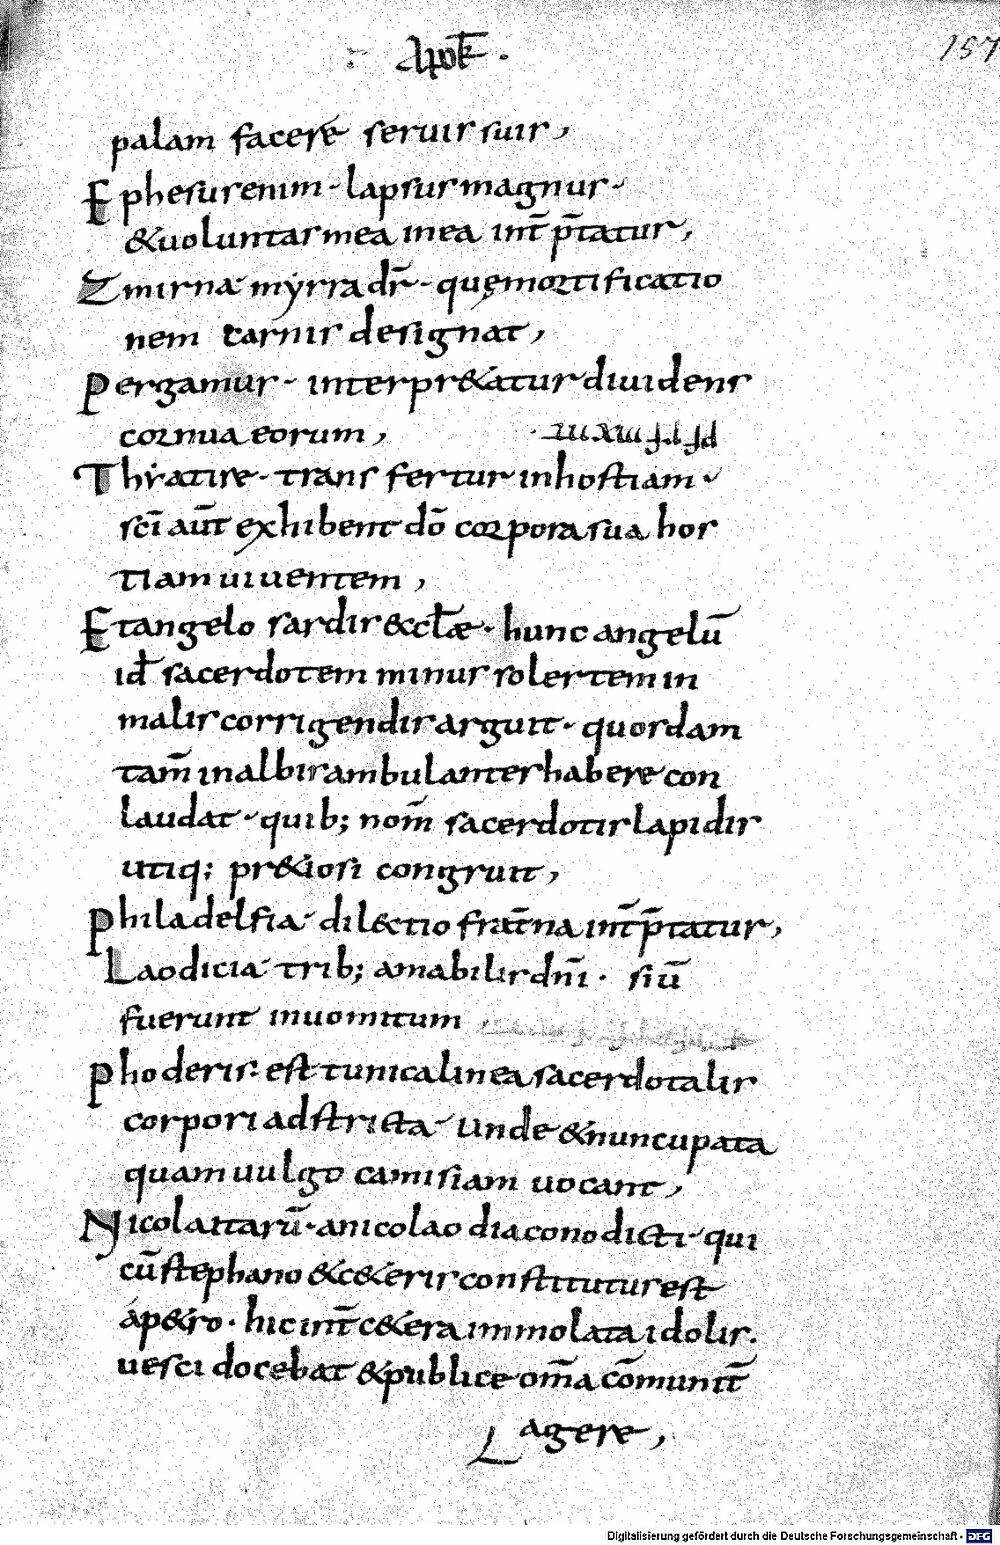 Apok̄ .
157
palam facere seruis suis,
Ephesus enim · lapsus magnus ·
& uoluntas mea in ea int̄ p̄tatur,
Zmirna myrra dr̄ · quę mortificatio
nem carnis designat,
Pergamus · interpr&atur diuidens
cornua eorum,
Thẏatire · transfertur in hostiam ·
sc̄i aūt exhibent dō corpora sua hos
tiam uiuentem,
Et angelo sardis &ccl̄æ · hunc angelū
id̄ sacerdotem minus solertem in
malis corrigendis arguit · quosdam
tam̄ in albis ambulantes habere con
laudat · quib; nom̄ sacerdotis lapidis
utiq; pr&iosi congruit,
Philadelfia · dil&ctio frat̄na int̄p̄tatur,
Laodicia trib; amabilis dn̄i · siū
fuerunt in uomitum
Phoderis · est tunica linea sacerdotalis
corpori adstricta · Unde & nuncupata
quam uulgo camisiam uocant,
Nicolaitarū · a nicolao diacono dicti · qui
cū stephano & c&eris constitutus est
a p&ro · hic int̄ c&era immolata idolis ·
uesci docebat & publice om̄a cōmunit̄
agere,
Digitalisierung gefördert durch die Deutsche Forschungsgemeinschaft - DFG